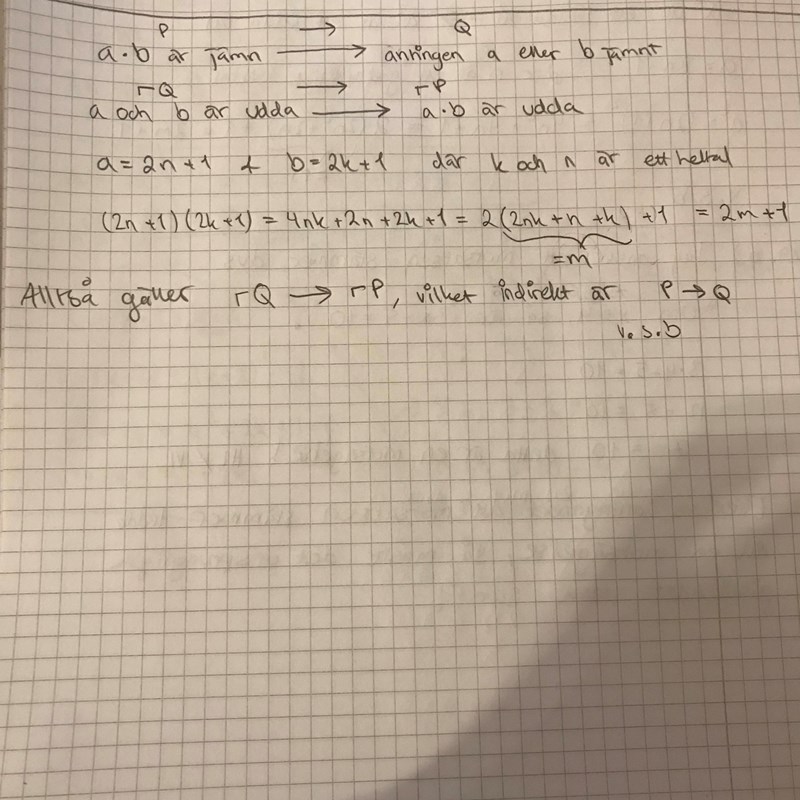 P → Q
a·b är jämn → antingen a eller b jämnt
¬Q → ¬P
a och b är udda → a·b är udda
a = 2n+1 & b = 2k+1 där k och n är ett heltal
(2n+1)(2k+1) = 4nk+2n+2k+1 = 2(2nk+n+k)+1 = 2m+1
=m
Alltså gäller ¬Q → ¬P, vilket indirekt är P → Q
v.s.b